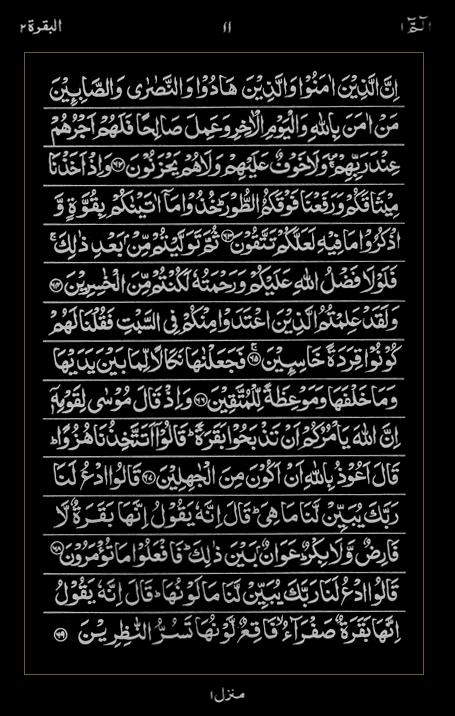 الٓمّٓ ١ ١١ البقرة ٢
اِنَّ الَّذِيْنَ اٰمَنُوْا وَالَّذِيْنَ هَادُوْا وَالنَّصٰرٰى وَالصَّابِـِٕيْنَ
مَنْ اٰمَنَ بِاللّٰهِ وَالْيَوْمِ الْاٰخِرِ وَعَمِلَ صَالِحًا فَلَهُمْ اَجْرُهُمْ
عِنْدَ رَبِّهِمْ ۚ وَلَا خَوْفٌ عَلَيْهِمْ وَلَا هُمْ يَحْزَنُوْنَ ﴿٦٢﴾ وَاِذْ اَخَذْنَا
مِيْثَاقَكُمْ وَرَفَعْنَا فَوْقَكُمُ الطُّوْرَ ؕ خُذُوْا مَاۤ اٰتَيْنٰكُمْ بِقُوَّةٍ وَّ
اذْكُرُوْا مَا فِيْهِ لَعَلَّكُمْ تَتَّقُوْنَ ﴿٦٣﴾ ثُمَّ تَوَلَّيْتُمْ مِّنْۢ بَعْدِ ذٰلِكَ ۚ
فَلَوْلَا فَضْلُ اللّٰهِ عَلَيْكُمْ وَرَحْمَتُهٗ لَكُنْتُمْ مِّنَ الْخٰسِرِيْنَ ﴿٦٤﴾
وَلَقَدْ عَلِمْتُمُ الَّذِيْنَ اعْتَدَوْا مِنْكُمْ فِى السَّبْتِ فَقُلْنَا لَهُمْ
كُوْنُوْا قِرَدَةً خَاسِـِٕيْنَ ۚ ﴿٦٥﴾ فَجَعَلْنٰهَا نَكَالًا لِّمَا بَيْنَ يَدَيْهَا
وَمَا خَلْفَهَا وَمَوْعِظَةً لِّلْمُتَّقِيْنَ ﴿٦٦﴾ وَاِذْ قَالَ مُوْسٰى لِقَوْمِهٖۤ
اِنَّ اللّٰهَ يَاْمُرُكُمْ اَنْ تَذْبَحُوْا بَقَرَةً ؕ قَالُوْۤا اَتَتَّخِذُنَا هُزُوًا ؕ
قَالَ اَعُوْذُ بِاللّٰهِ اَنْ اَكُوْنَ مِنَ الْجٰهِلِيْنَ ﴿٦٧﴾ قَالُوا ادْعُ لَنَا
رَبَّكَ يُبَيِّنْ لَّنَا مَا هِىَ ؕ قَالَ اِنَّهٗ يَقُوْلُ اِنَّهَا بَقَرَةٌ لَّا
فَارِضٌ وَّلَا بِكْرٌ ؕ عَوَانٌۢ بَيْنَ ذٰلِكَ ؕ فَافْعَلُوْا مَا تُؤْمَرُوْنَ ﴿٦٨﴾
قَالُوا ادْعُ لَنَا رَبَّكَ يُبَيِّنْ لَّنَا مَا لَوْنُهَا ؕ قَالَ اِنَّهٗ يَقُوْلُ
اِنَّهَا بَقَرَةٌ صَفْرَآءُ ۙ فَاقِعٌ لَّوْنُهَا تَسُرُّ النّٰظِرِيْنَ ﴿٦٩﴾
منزل ١